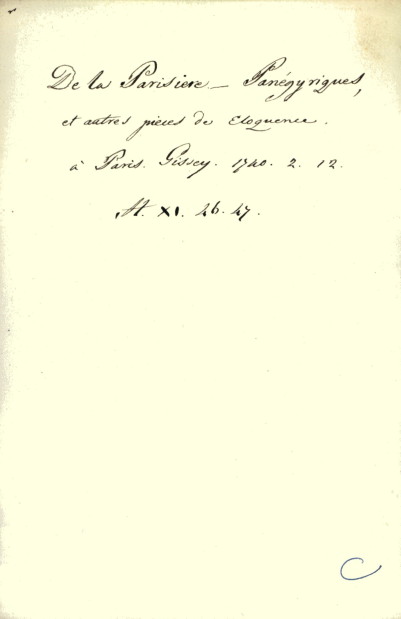 De la Parisiere _ Panégyriques,
et autres pieces de Eloquence.
à Paris. Gissey. 1740. 2. 12.
H. XI. 46. 47.
C